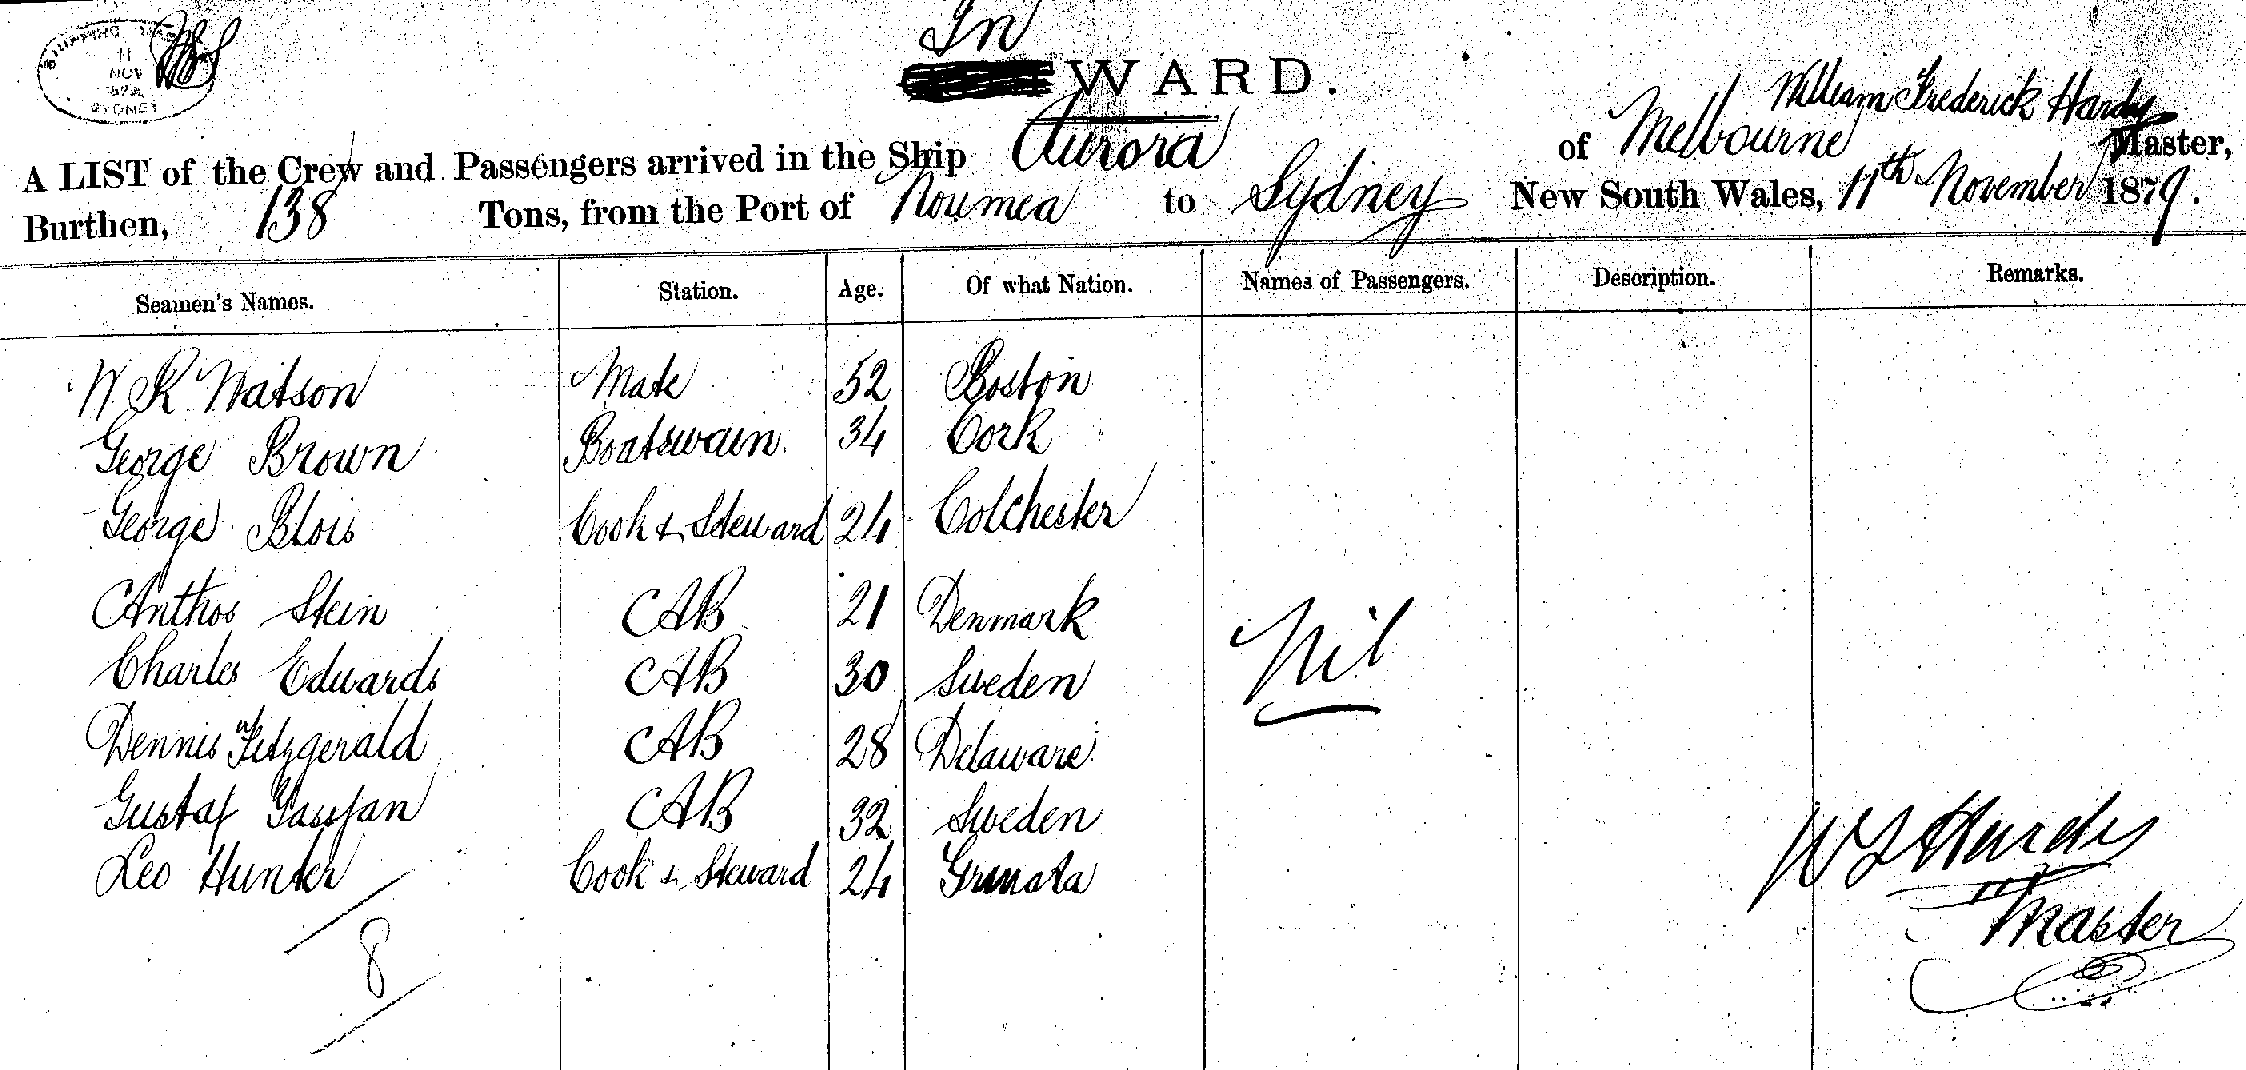 SHIPPING
11
NOV
SYDNEY
In
WARD.
William Frederick Hardy
A LIST of the Crew and Passengers arrived in the Ship Aurora of Melbourne Master,
Burthen, 138 Tons, from the Port of Noumea to Sydney New South Wales, 11th November 1879.
Seamen's Names. Station. Age. Of what Nation. Names of Passengers. Description. Remarks.
W. K Watson Mate 52 Boston
George Brown Boatswain. 34 Cork
George Blois Cook & Steward 24 Colchester
Anthos Stein AB 21 Denmark
Charles Edwards AB 30 Sweden
Nil
Dennis Fitzgerald AB 28 Delaware
Gustaf AB 32 Sweden
Leo Hunter Cook & Steward 24 Grenata
8
W F Hardy
Master